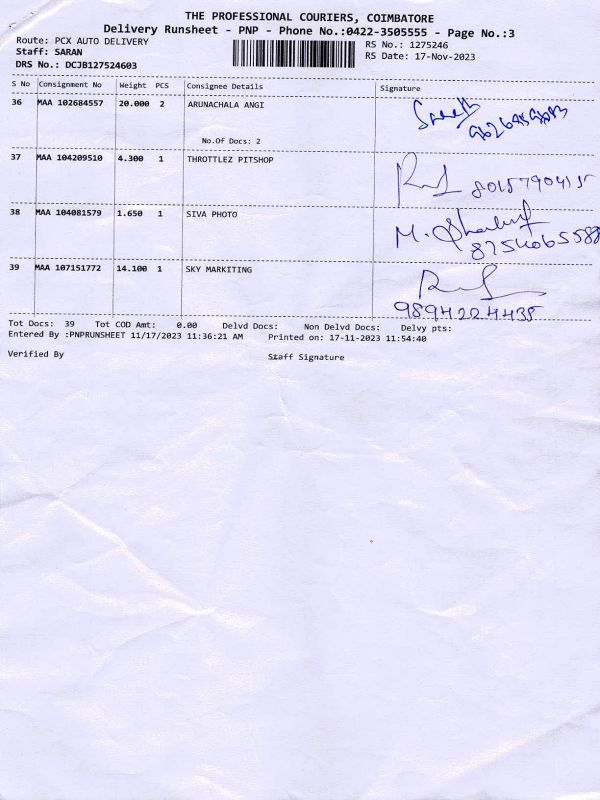 THE PROFESSIONAL COURIERS, COIMBATORE
Delivery Runsheet - PNP - Phone No.:0422-3505555 - Page No.:3
Route: PCX AUTO DELIVERY
RS No.: 1275246
Staff: SARAN
RS Date: 17-Nov-2023
DRS No.: DCJB127524603
S No Consignment No Weight PCS Consignee Details Signature
36 MAA 102684557 20.000 2 ARUNACHALA ANGI
No.Of Docs: 2
37 MAA 104209510 4.300 1 THROTTLEZ PITSHOP
38 MAA 104081579 1.650 1 SIVA PHOTO
M.
8754065588
39 MAA 107151772 14.100 1 SKY MARKITING
9894224438
Tot Docs: 39 Tot COD Amt: 0.00 Delvd Docs: Non Delvd Docs: Delvy pts:
Entered By :PNPRUNSHEET 11/17/2023 11:36:21 AM Printed on: 17-11-2023 11:54:40
Verified By Staff Signature